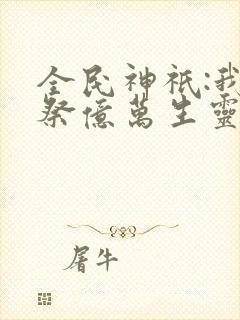 全民神祇:我
祭億萬生靈
屠牛